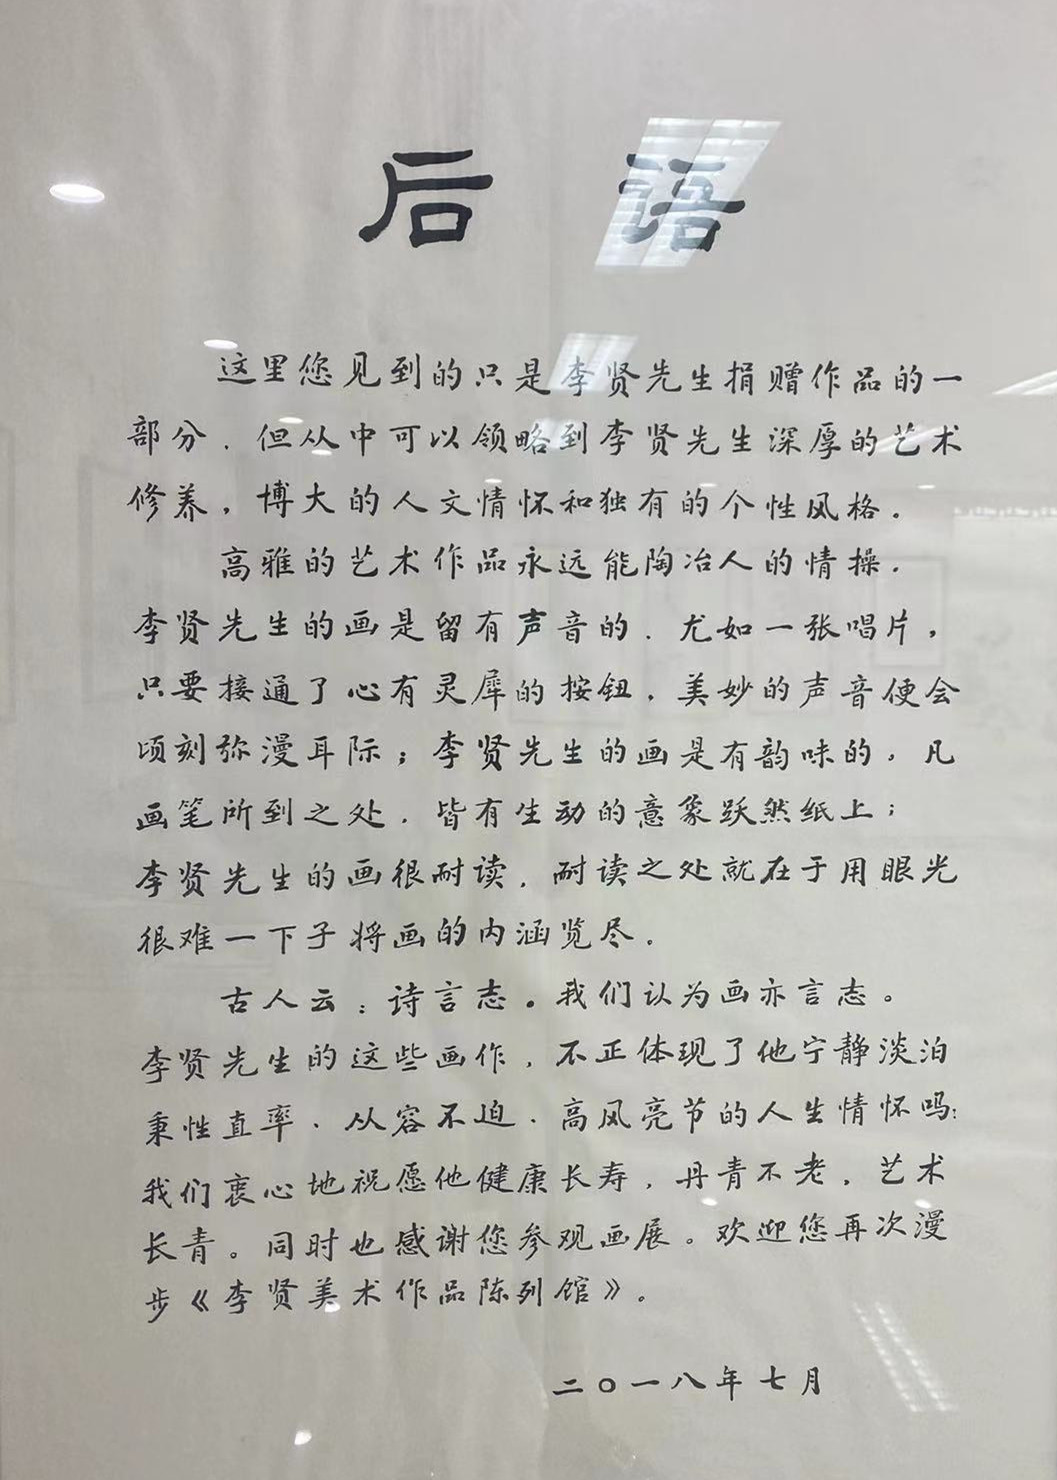 后语
这里您见到的只是李贤先生捐赠作品的一
部分.但从中可以领略到李贤先生深厚的艺术
修养,博大的人文情怀和独有的个性风格.
高雅的艺术作品永远能陶冶人的情操.
李贤先生的画是留有声音的.尤如一张唱片,
只要接通了心有灵犀的按钮,美妙的声音便会
顷刻弥漫耳际;李贤先生的画是有韵味的,凡
画笔所到之处.皆有生动的意象跃然纸上;
李贤先生的画很耐读,耐读之处就在于用眼光
很难一下子将画的内涵览尽。
古人云:诗言志。我们认为画亦言志。
李贤先生的这些画作,不正体现了他宁静淡泊
秉性直率.从容不迫.高风亮节的人生情怀吗;
我们衷心地祝愿他健康长寿,丹青不老,艺术
长青。同时也感谢您参观画展。欢迎您再次漫
步《李贤美术作品陈列馆》。
二〇一八年七月